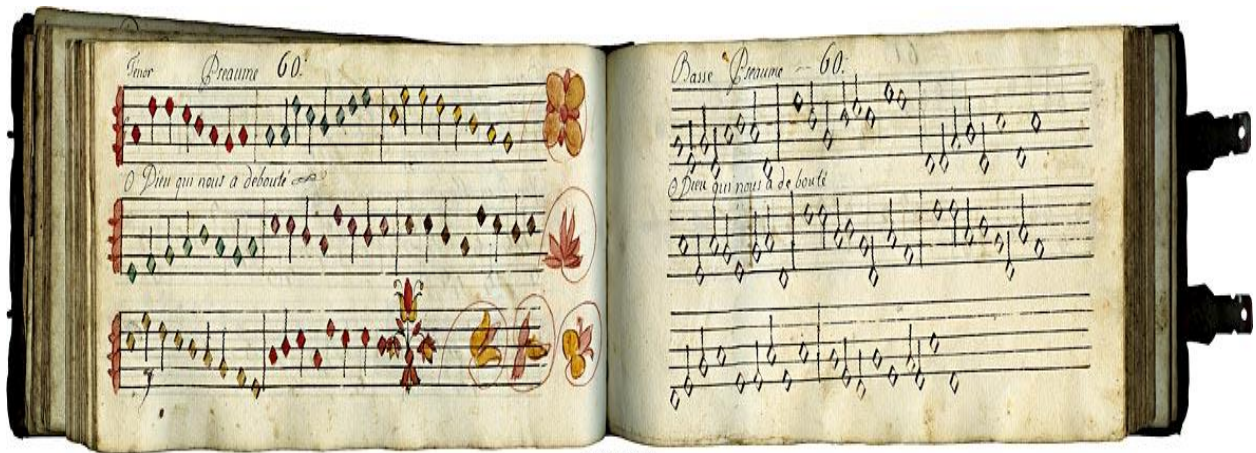 Tenor Pseaume 60.
O Dieu qui nous a debouté
Basse Pseaume - 60.
O Dieu qui nous a de bouté